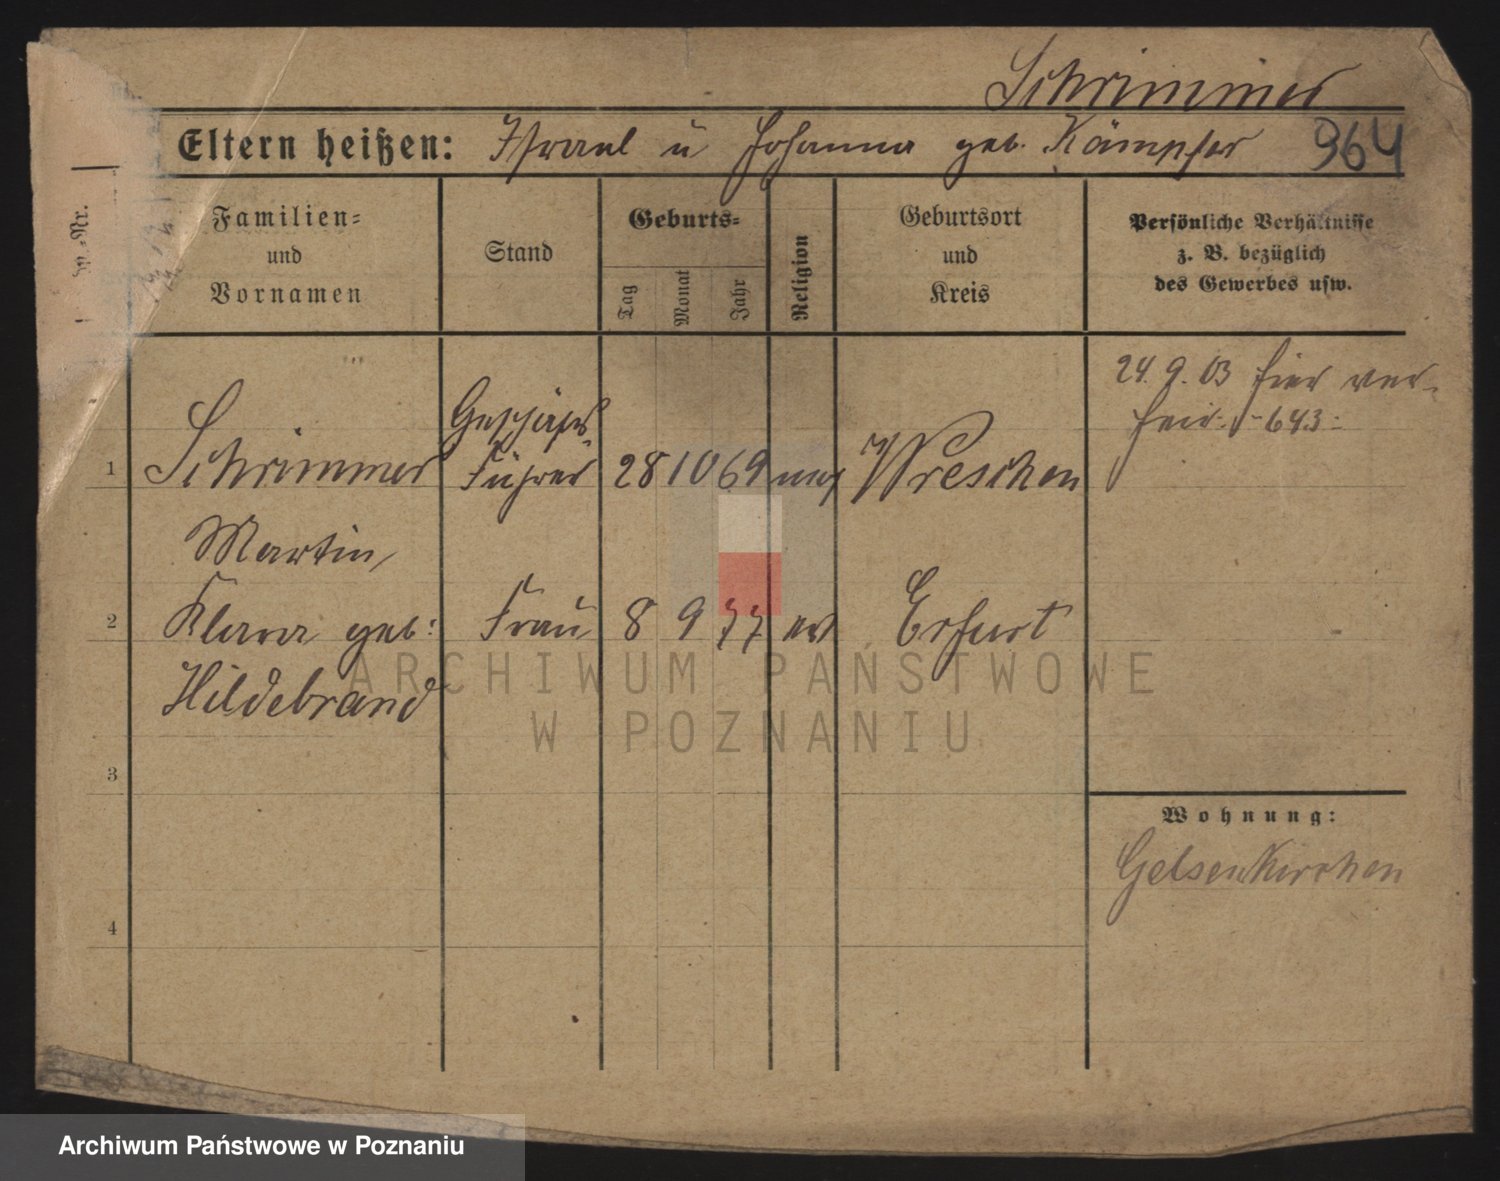 Schrimmer
Eltern heißen: Israel u Johanna geb. Kämpfer 964
Familien=
und
Vornamen
Stand
Geburts=
Tag
Monat
Jahr
Religion
Geburtsort
und
Kreis
Persönliche Verhältnisse
z. B. bezüglich
des Gewerbes usw.
24. 9. 03 hier ver-
heir. 643
Geschäfts-
1 Schrimmer Führer 28 10 69 mos Wreschen
Martin,
2 Klara geb: Frau 8 9 77 ev Erfurt
Hildebrand
3
Wohnung:
Gelsenkirchen
4
ARCHIWUM PAŃSTWOWE
W POZNANIU
Archiwum Państwowe w Poznaniu